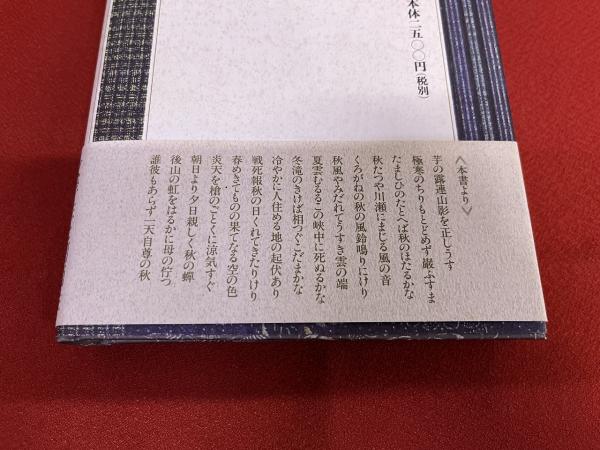 本体二五〇〇円(税別)
〈本書より〉
芋の露連山影を正しうす
極寒のちりもとどめず巌ふすま
たましひのたとへば秋のほたるかな
秋たつや川瀬にまじる風の音
くろがねの秋の風鈴鳴りにけり
秋風やみだれてうすき雲の端
夏雲むるるこの峡中に死ぬるかな
冬滝のきけば相つぐこだまかな
冷やかに人住める地の起伏あり
戦死報秋の日くれてきたりけり
春めきてものの果てなる空の色
炎天を槍のごとくに涼気すぐ
朝日より夕日親しく秋の蟬
後山の虹をはるかに母の佇つ
誰彼もあらず一天自尊の秋